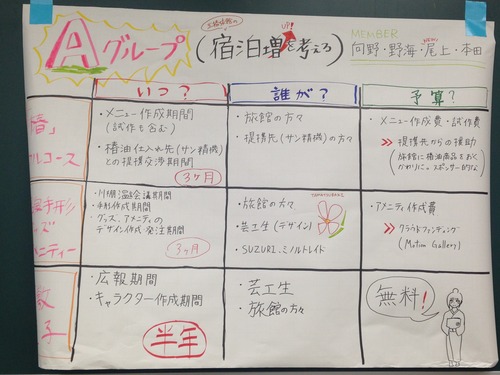 Aグループ
(宿泊増を考える)
UP!
MEMBER
向野・野海・尾上・本田
いつ?
誰が?
予算?
椿」
ルコース
・メニュー作成期間
(試作も含む)
・椿油仕入れ先(サン精機)
との提携交渉期間
3ヶ月
・旅館の方々
・提携先(サン精機)の方々
・メニュー作成費・試作費
>> 提携先からの援助
(旅館に椿油商品をおく
かわりにスポンサー的な)
手形
ズ
メニティー
・川棚温泉会議期間
・手形作成期間
・グッズ、アメニティの
デザイン作成・発注期間
3ヶ月
・旅館の方々
・芸工生(デザイン)
・SUZURI、ミノルトレイド
・アメニティ作成費
>> クラウドファンディング
(Motion Gallery)
子
・広報期間
・キャラクター作成期間
半年
・芸工生
・旅館の方々
無料!